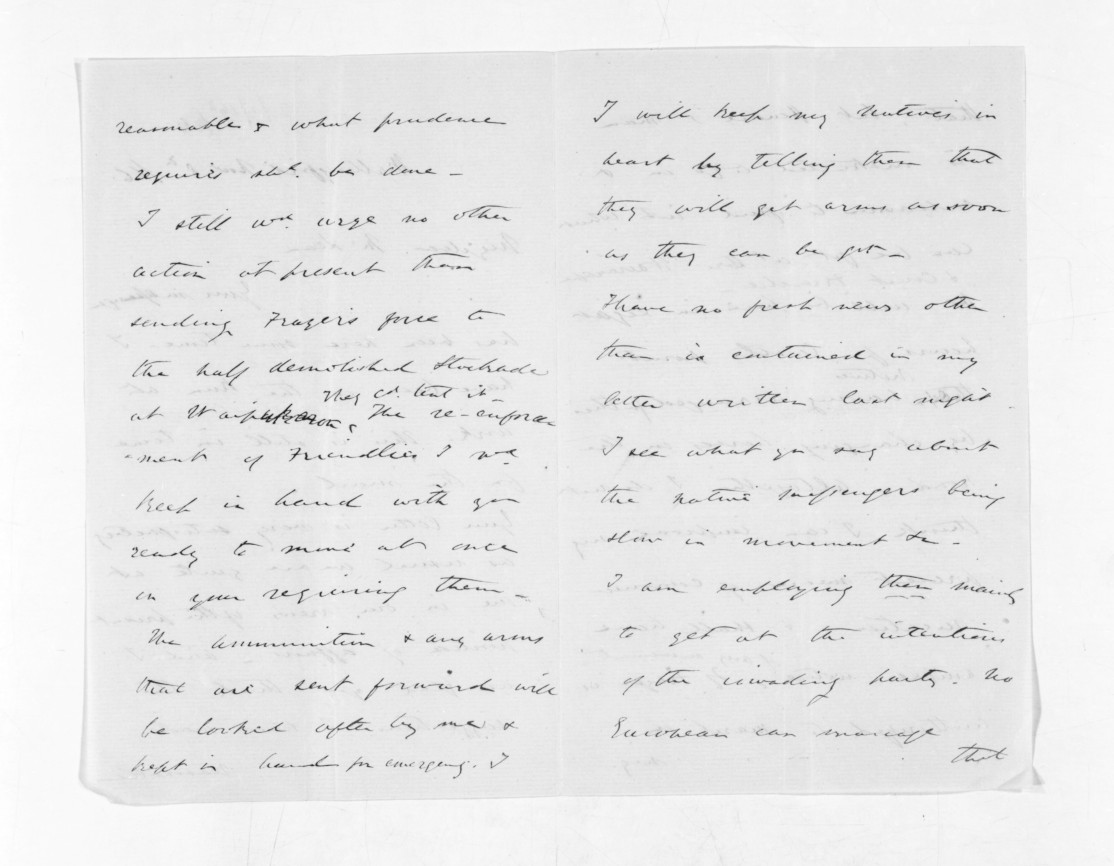 reasonable & what prudence
requires shd. be done -
I still wd. urge no other
action at present than
sending Frazer's force to
the half demolished Stockade
They cd. tent it -
at The re-enforce
ment of Friendlies I wd
keep in hand with you
ready to move at once
on your requiring them -
The ammunition & any arms
that are sent forward will
be looked after by me &
kept in hand for emergency. I
I will keep my natives in
heart by telling them that
they will get arms as soon
as they can be got -
I have no fresh news other
than is contained in my
letter written last night.
I see what you say about
the native messengers being
slow in movement &c -
I am employing them mainly
to get at the intentions
of the invading party. No
European can manage
that